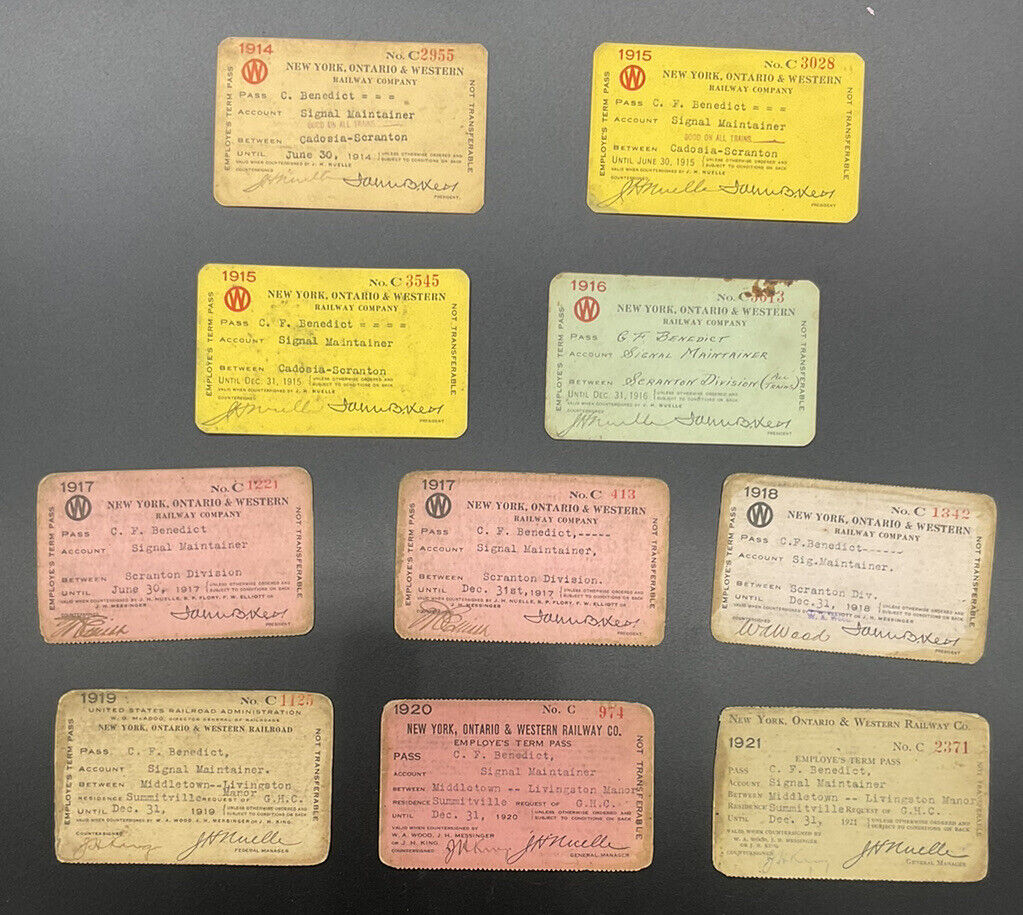 1914 No. C2955
W NEW YORK, ONTARIO & WESTERN
RAILWAY COMPANY
EMPLOYE'S TERM PASS
NOT TRANSFERABLE
PASS C. Benedict = = =
ACCOUNT Signal Maintainer
GOOD ON ALL TRAINS
BETWEEN Cadosia-Scranton
UNTIL June 30, 1914 { UNLESS OTHERWISE ORDERED AND
SUBJECT TO CONDITIONS ON BACK
VALID WHEN COUNTERSIGNED BY J. H. NUELLE
COUNTERSIGNED
J H Nuelle
PRESIDENT
1915 No. C 3028
W NEW YORK, ONTARIO & WESTERN
RAILWAY COMPANY
EMPLOYE'S TERM PASS
NOT TRANSFERABLE
PASS C. F. Benedict = = =
ACCOUNT Signal Maintainer
GOOD ON ALL TRAINS
BETWEEN Cadosia-Scranton
UNTIL JUNE 30, 1915 { UNLESS OTHERWISE ORDERED AND
SUBJECT TO CONDITIONS ON BACK
VALID WHEN COUNTERSIGNED BY J. H. NUELLE
COUNTERSIGNED
J H Nuelle
PRESIDENT
1915 No. C 3545
W NEW YORK, ONTARIO & WESTERN
RAILWAY COMPANY
EMPLOYE'S TERM PASS
NOT TRANSFERABLE
PASS C. F. Benedict = = = =
ACCOUNT Signal Maintainer
BETWEEN Cadosia-Scranton
UNTIL DEC. 31, 1915 { UNLESS OTHERWISE ORDERED AND
SUBJECT TO CONDITIONS ON BACK
VALID WHEN COUNTERSIGNED BY J. H. NUELLE
COUNTERSIGNED
J H Nuelle
PRESIDENT
1916 No. C
W NEW YORK, ONTARIO & WESTERN
RAILWAY COMPANY
EMPLOYE'S TERM PASS
NOT TRANSFERABLE
PASS C. F. BENEDICT
ACCOUNT SIGNAL MAINTAINER
BETWEEN SCRANTON DIVISION (ALL TRAINS)
UNTIL DEC. 31, 1916 { UNLESS OTHERWISE ORDERED AND
SUBJECT TO CONDITIONS ON BACK
VALID WHEN COUNTERSIGNED BY J. H. NUELLE
COUNTERSIGNED
J H Nuelle
PRESIDENT
1917 No. C 1221
W NEW YORK, ONTARIO & WESTERN
RAILWAY COMPANY
EMPLOYE'S TERM PASS
NOT TRANSFERABLE
PASS C. F. Benedict
ACCOUNT Signal Maintainer
BETWEEN Scranton Division
UNTIL June 30, 1917 { UNLESS OTHERWISE ORDERED AND
SUBJECT TO CONDITIONS ON BACK
VALID WHEN COUNTERSIGNED BY J. H. NUELLE, R. P. FLORY, F. W. ELLIOTT OR
J. H. MESSINGER
COUNTERSIGNED
PRESIDENT
1917 No. C 413
W NEW YORK, ONTARIO & WESTERN
RAILWAY COMPANY
EMPLOYE'S TERM PASS
NOT TRANSFERABLE
PASS C. F. Benedict,-----
ACCOUNT Signal Maintainer,
BETWEEN Scranton Division.
UNTIL Dec. 31st,1917 { UNLESS OTHERWISE ORDERED AND
SUBJECT TO CONDITIONS ON BACK
VALID WHEN COUNTERSIGNED BY J. H. NUELLE, R. P. FLORY, F. W. ELLIOTT OR
J. H. MESSINGER
COUNTERSIGNED
PRESIDENT
1918 No. C 1342
W NEW YORK, ONTARIO & WESTERN
RAILWAY COMPANY
EMPLOYE'S TERM PASS
NOT TRANSFERABLE
PASS C.F.Benedict------
ACCOUNT Sig.Maintainer.
BETWEEN Scranton Div.
UNTIL Dec.31, 1918 { UNLESS OTHERWISE ORDERED AND
SUBJECT TO CONDITIONS ON BACK
VALID WHEN COUNTERSIGNED BY ELLIOTT OR J. H. MESSINGER
W. A. WOOD
COUNTERSIGNED
W A Wood
PRESIDENT
1919 No. C 1125
UNITED STATES RAILROAD ADMINISTRATION
W. G. McADOO, DIRECTOR GENERAL OF RAILROADS
NEW YORK, ONTARIO & WESTERN RAILROAD
EMPLOYE'S TERM PASS
NOT TRANSFERABLE
PASS C. F. Benedict,
ACCOUNT Signal Maintainer.
BETWEEN Middletown--Livingston
Manor
RESIDENCE Summitville REQUEST OF G.H.C.
UNTIL Dec. 31, 1919 { UNLESS OTHERWISE ORDERED AND
SUBJECT TO CONDITIONS ON BACK
VALID WHEN COUNTERSIGNED BY W. A. WOOD, J. H. MESSINGER OR J. H. KING.
COUNTERSIGNED
J H King J H Nuelle
FEDERAL MANAGER
1920 No. C 974
NEW YORK, ONTARIO & WESTERN RAILWAY CO.
EMPLOYE'S TERM PASS
NOT TRANSFERABLE
PASS C. F. Benedict,
ACCOUNT Signal Maintainer
BETWEEN Middletown -- Livingston Manor
RESIDENCE Summitville REQUEST OF G.H.C.
UNTIL Dec. 31, 1920 { UNLESS OTHERWISE ORDERED AND
SUBJECT TO CONDITIONS ON BACK
VALID WHEN COUNTERSIGNED BY
W. A. WOOD, J. H. MESSINGER
OR J. H. KING
COUNTERSIGNED
J H King J H Nuelle
GENERAL MANAGER
NEW YORK, ONTARIO & WESTERN RAILWAY CO.
1921 No. C 2371
EMPLOYE'S TERM PASS
NOT TRANSFERABLE
PASS C. F. Benedict,
ACCOUNT Signal Maintainer
BETWEEN Middletown -- Livingston Manor
RESIDENCE Summitville REQUEST OF G.H.C.
UNTIL Dec. 31, 1921 { UNLESS OTHERWISE ORDERED AND
SUBJECT TO CONDITIONS ON BACK
VALID WHEN COUNTERSIGNED BY
W. A. WOOD, J. H. MESSINGER
OR J. H. KING
COUNTERSIGNED
J H King J H Nuelle
GENERAL MANAGER